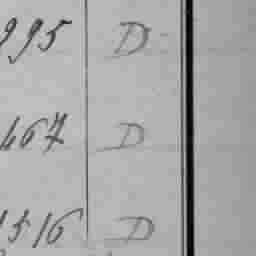 995 D
467 D
1516 D